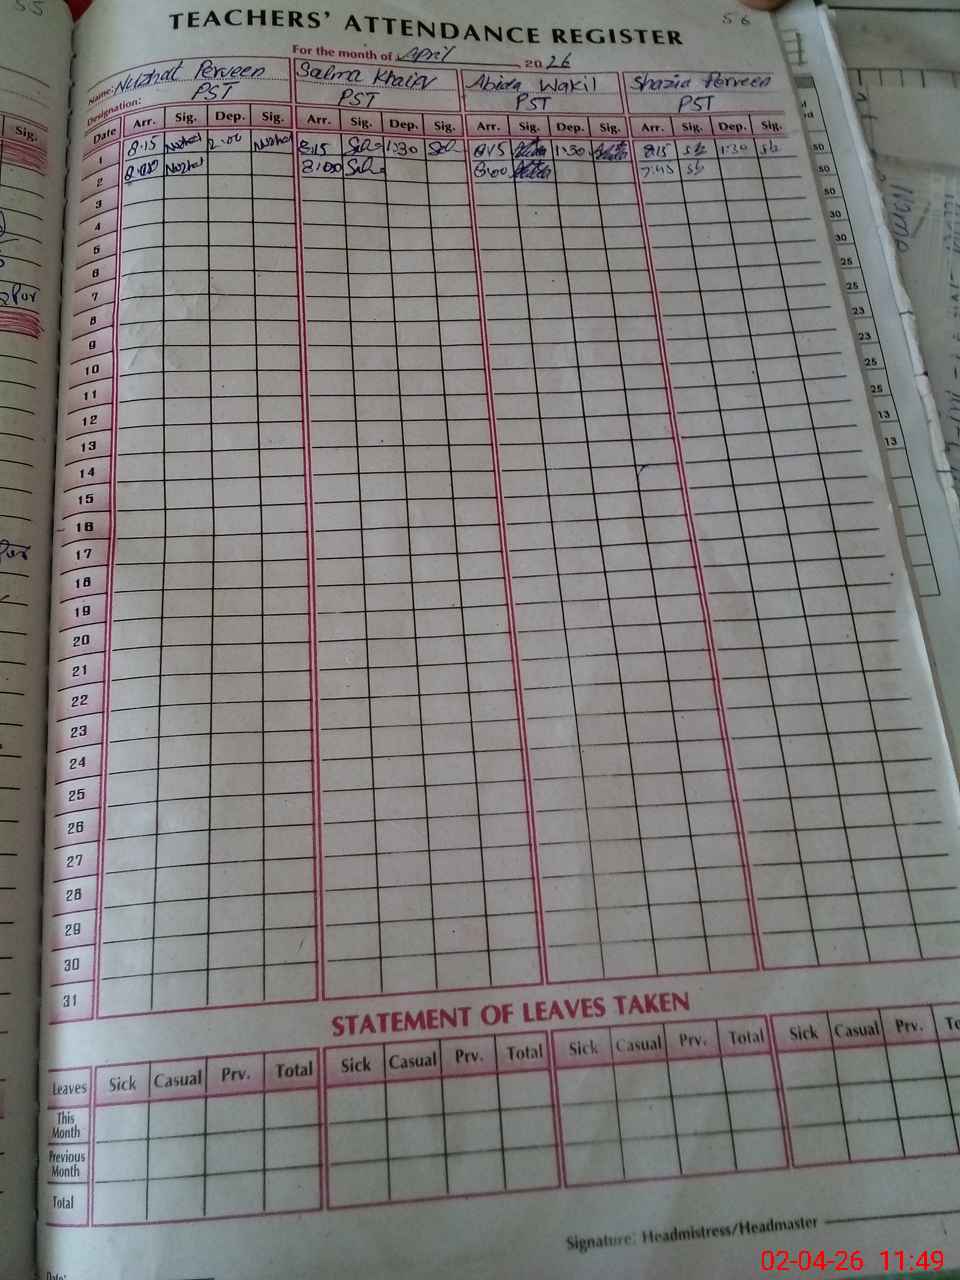 55
56
TEACHERS' ATTENDANCE REGISTER
For the month of April 2026
Name: Nuzhat Perveen Salma Khair Abida Wakil Shazia Perveen
Designation: PST PST PST PST
Date Arr. Sig. Dep. Sig. Arr. Sig. Dep. Sig. Arr. Sig. Dep. Sig. Arr. Sig. Dep. Sig.
1 8:15 Nuzhat 2:00 Nuzhat 8:15 1:30 8:15 1:30 8:15 1:30
2 8:00 Nuzhat 8:00 8:00 7:45
3
4
5
6
7
8
9
10
11
12
13
14
15
16
17
18
19
20
21
22
23
24
25
26
27
28
29
30
31
Sig.
50
50
50
30
30
25
25
23
23
25
25
13
13
STATEMENT OF LEAVES TAKEN
Leaves Sick Casual Prv. Total Sick Casual Prv. Total Sick Casual Prv. Total Sick Casual Prv.
This Month
Previous Month
Total
Signature: Headmistress/Headmaster
Date:
02-04-26 11:49